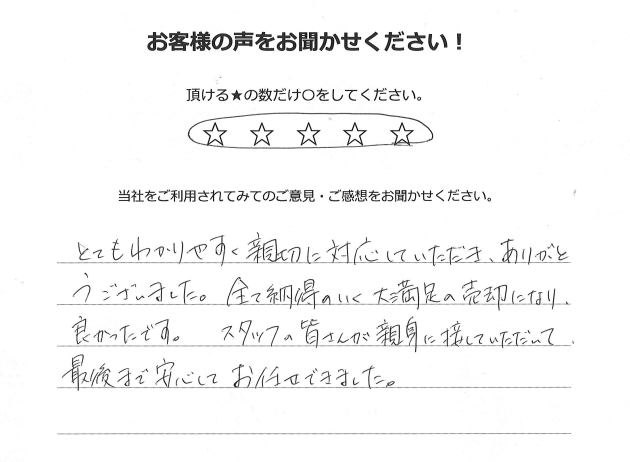 お客様の声をお聞かせください！
頂ける★の数だけ〇をしてください。
☆ ☆ ☆ ☆ ☆
当社をご利用されてみてのご意見・ご感想をお聞かせください。
とてもわかりやすく親切に対応していただき、ありがと
うございました。全て納得のいく大満足の売却になり、
良かったです。 スタッフの皆さんが親身に接していただいて、
最後まで安心してお任せできました。